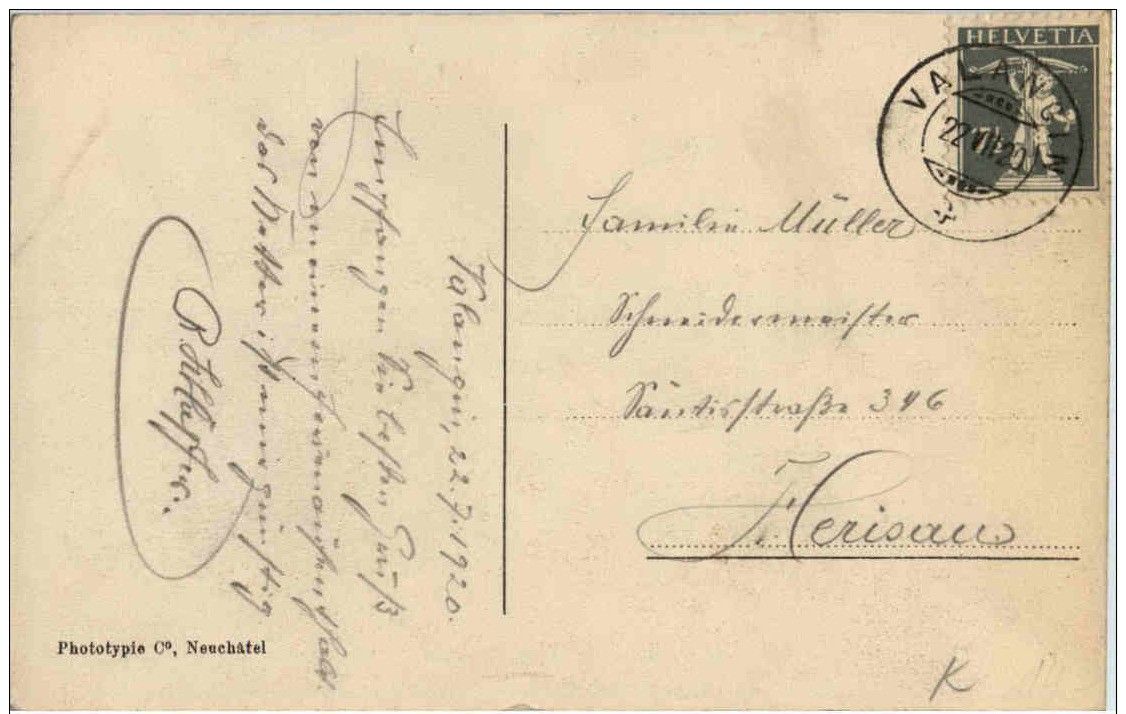 HELVETIA
VALANGIN
22.VII.20
Valangin, 22.7.1920.
Empfangen Sie besten Gruß
von meinem Ferienaufenthalt.
Das Wetter ist nur günstig.
Familie Müller
Schneidermeister
Säntisstraße 346
Herisau
Phototypie Cº, Neuchâtel
K